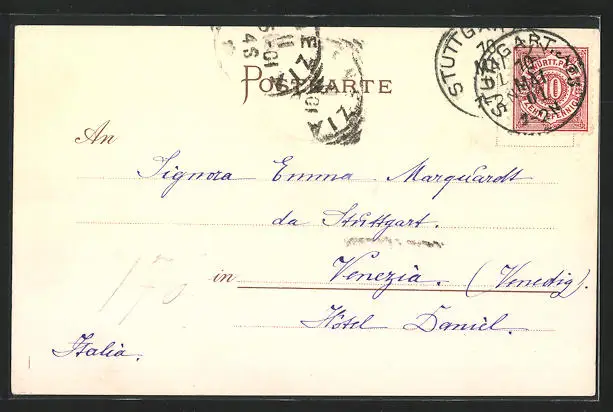 POSTKARTE
STUTTGART
STUTTGART
10
An
Signora Emma Marquardt
da Stuttgart.
in Venezia. (Venedig).
Hôtel Daniel.
Italia.